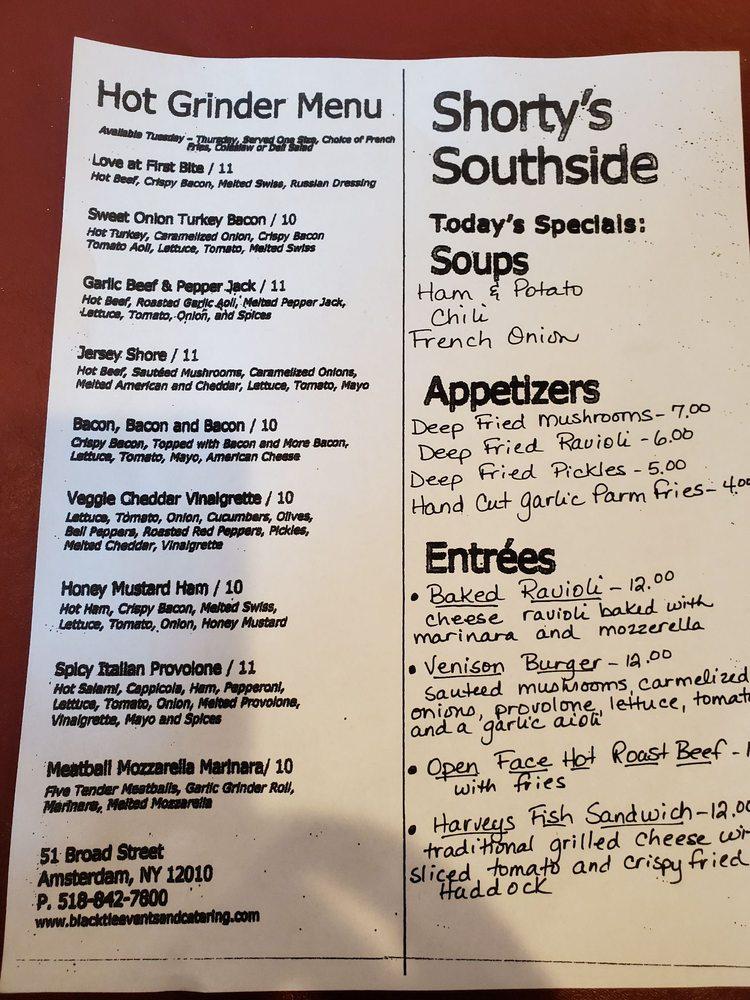 Hot Grinder Menu
Available Tuesday – Thursday, Served One Size, Choice of French
Fries, Coleslaw or Deli Salad
Love at First Bite / 11
Hot Beef, Crispy Bacon, Melted Swiss, Russian Dressing
Sweet Onion Turkey Bacon / 10
Hot Turkey, Caramelized Onion, Crispy Bacon
Tomato Aoli, Lettuce, Tomato, Melted Swiss
Garlic Beef & Pepper Jack / 11
Hot Beef, Roasted Garlic Aoli, Melted Pepper Jack,
Lettuce, Tomato, Onion, and Spices
Jersey Shore / 11
Hot Beef, Sautéed Mushrooms, Caramelized Onions,
Melted American and Cheddar, Lettuce, Tomato, Mayo
Bacon, Bacon and Bacon / 10
Crispy Bacon, Topped with Bacon and More Bacon,
Lettuce, Tomato, Mayo, American Cheese
Veggie Cheddar Vinaigrette / 10
Lettuce, Tomato, Onion, Cucumbers, Olives,
Bell Peppers, Roasted Red Peppers, Pickles,
Melted Cheddar, Vinaigrette
Honey Mustard Ham / 10
Hot Ham, Crispy Bacon, Melted Swiss,
Lettuce, Tomato, Onion, Honey Mustard
Spicy Italian Provolone / 11
Hot Salami, Cappicola, Ham, Pepperoni,
Lettuce, Tomato, Onion, Melted Provolone,
Vinaigrette, Mayo and Spices
Meatball Mozzarella Marinara/ 10
Five Tender Meatballs, Garlic Grinder Roll,
Marinara, Melted Mozzarella
51 Broad Street
Amsterdam, NY 12010
P. 518-842-7800
www.blacktieeventsandcatering.com
Shorty's
Southside
Today's Specials:
Soups
Ham & Potato
Chili
French Onion
Appetizers
Deep Fried Mushrooms - 7.00
Deep Fried Ravioli - 6.00
Deep Fried Pickles - 5.00
Hand Cut garlic Parm fries - 4.00
Entrées
• Baked Ravioli - 12.00
cheese ravioli baked with
marinara and mozzerella
• Venison Burger - 12.00
sauteed mushrooms, carmelized
onions, provolone, lettuce, tomato
and a garlic aioli
• Open Face Hot Roast Beef -
with fries
• Harveys Fish Sandwich - 12.00
traditional grilled cheese
sliced tomato and crispy fried
Haddock